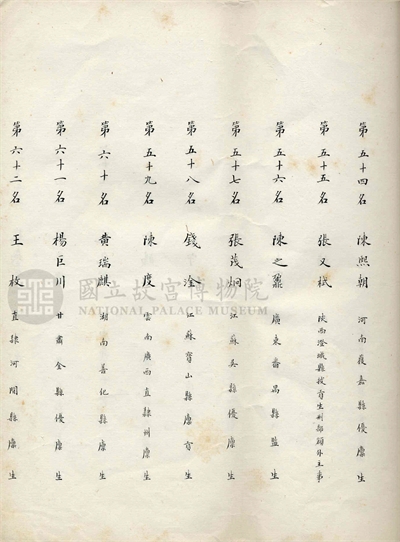 第五十四名 陳熙朝 河南獲嘉縣優廩生
第五十五名 張又栻 陝西澄城縣拔貢生刑部額外主事
第五十六名 陳之鼐 廣東番禺縣監生
第五十七名 張茂炯 江蘇吳縣優廩生
第五十八名 錢淦 江蘇寶山縣廩貢生
第五十九名 陳度 雲南廣西直隸州廩生
第六十名 黄瑞麒 湖南善化縣廩生
第六十一名 楊巨川 甘肅金縣優廩生
第六十二名 王枚 直隸河間縣廩生
國立故宮博物院
NATIONAL PALACE MUSEUM